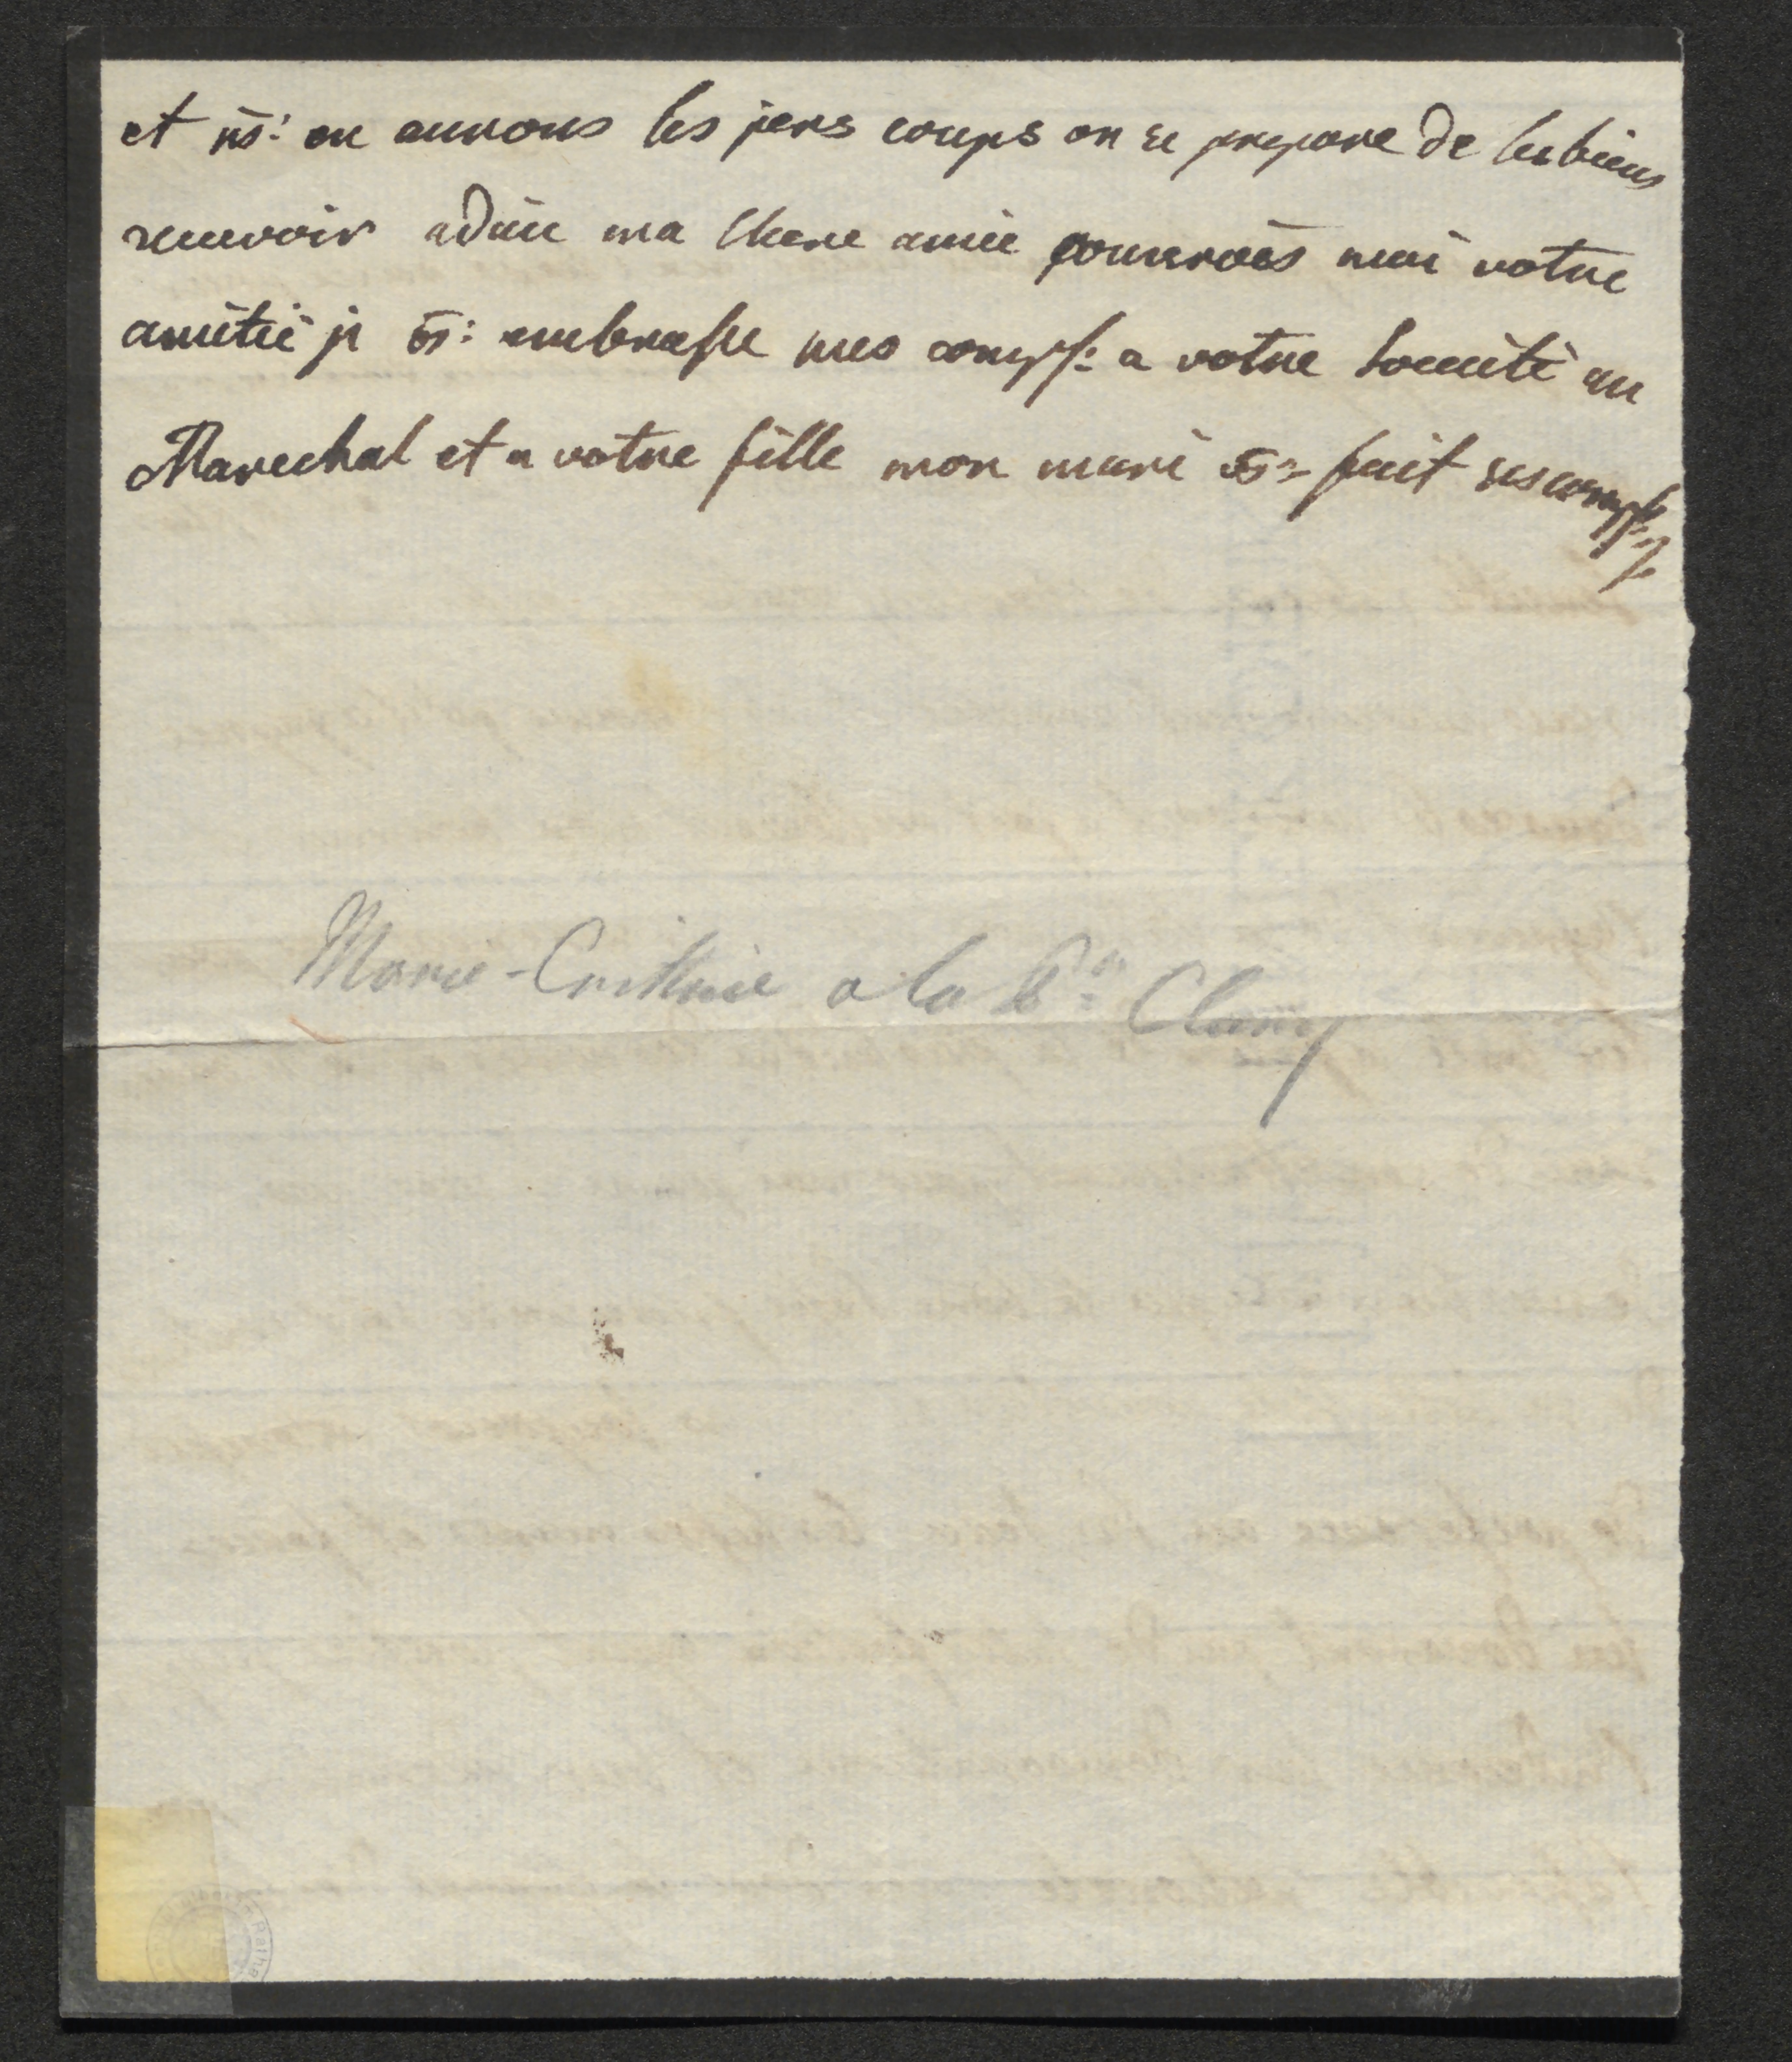 et ns: en aurons les pers coups on se prepare de les biens
recevoir adieu ma chere amie conservés moi votre
amitié je vs: embrasse mes compl: a votre societé au
Marechal et a votre fille mon mari vs: fait ses compl:
Marie-Cristine a la Csse Clary